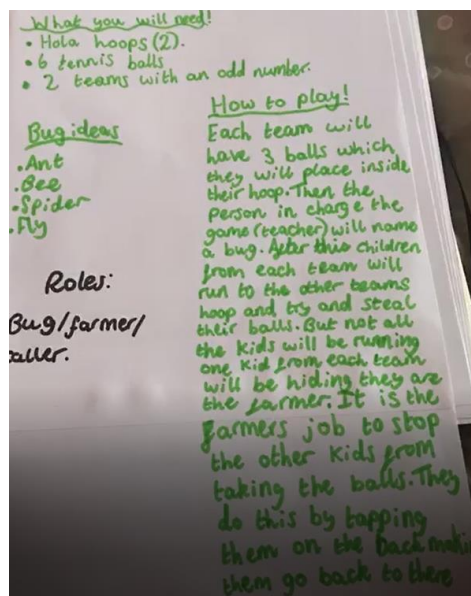 What you will need!
• Hola hoops (2).
• 6 tennis balls
• 2 teams with an odd number.
Bug ideas
• Ant
• Bee
• Spider
• Fly
Roles:
Bug/farmer/
aller.
How to play!
Each team will
have 3 balls which
they will place inside
their hoop. Then the
person in charge the
game (teacher) will name
a bug. After this children
from each team will
run to the other teams
hoop and try and steal
their balls. But not all
the kids will be running
one kid from each team
will be hiding they are
the farmer. It is the
farmers job to stop
the other kids from
taking the balls. They
do this by tapping
them on the back maki
them go back to there